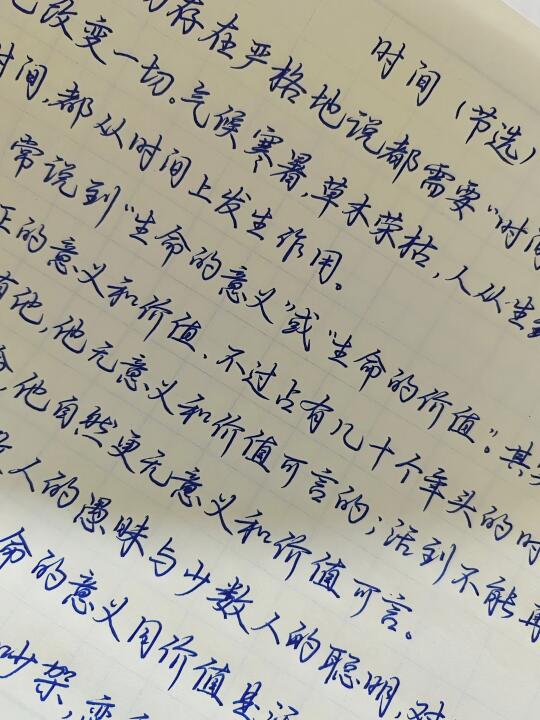 时间（节选）
的存在严格地说都需要"时间
改变一切。气候寒暑，草木荣枯，人从生到
时间，都从时间上发生作用。
常说到"生命的意义"或"生命的价值"。其实
正的意义和价值，不过占有几十个年头的时
有他，他无意义和价值可言的；活到不能再
他自然更无意义和价值可言。
人的愚昧与少数人的聪明，对
命的意义同价值是
吵架，恋